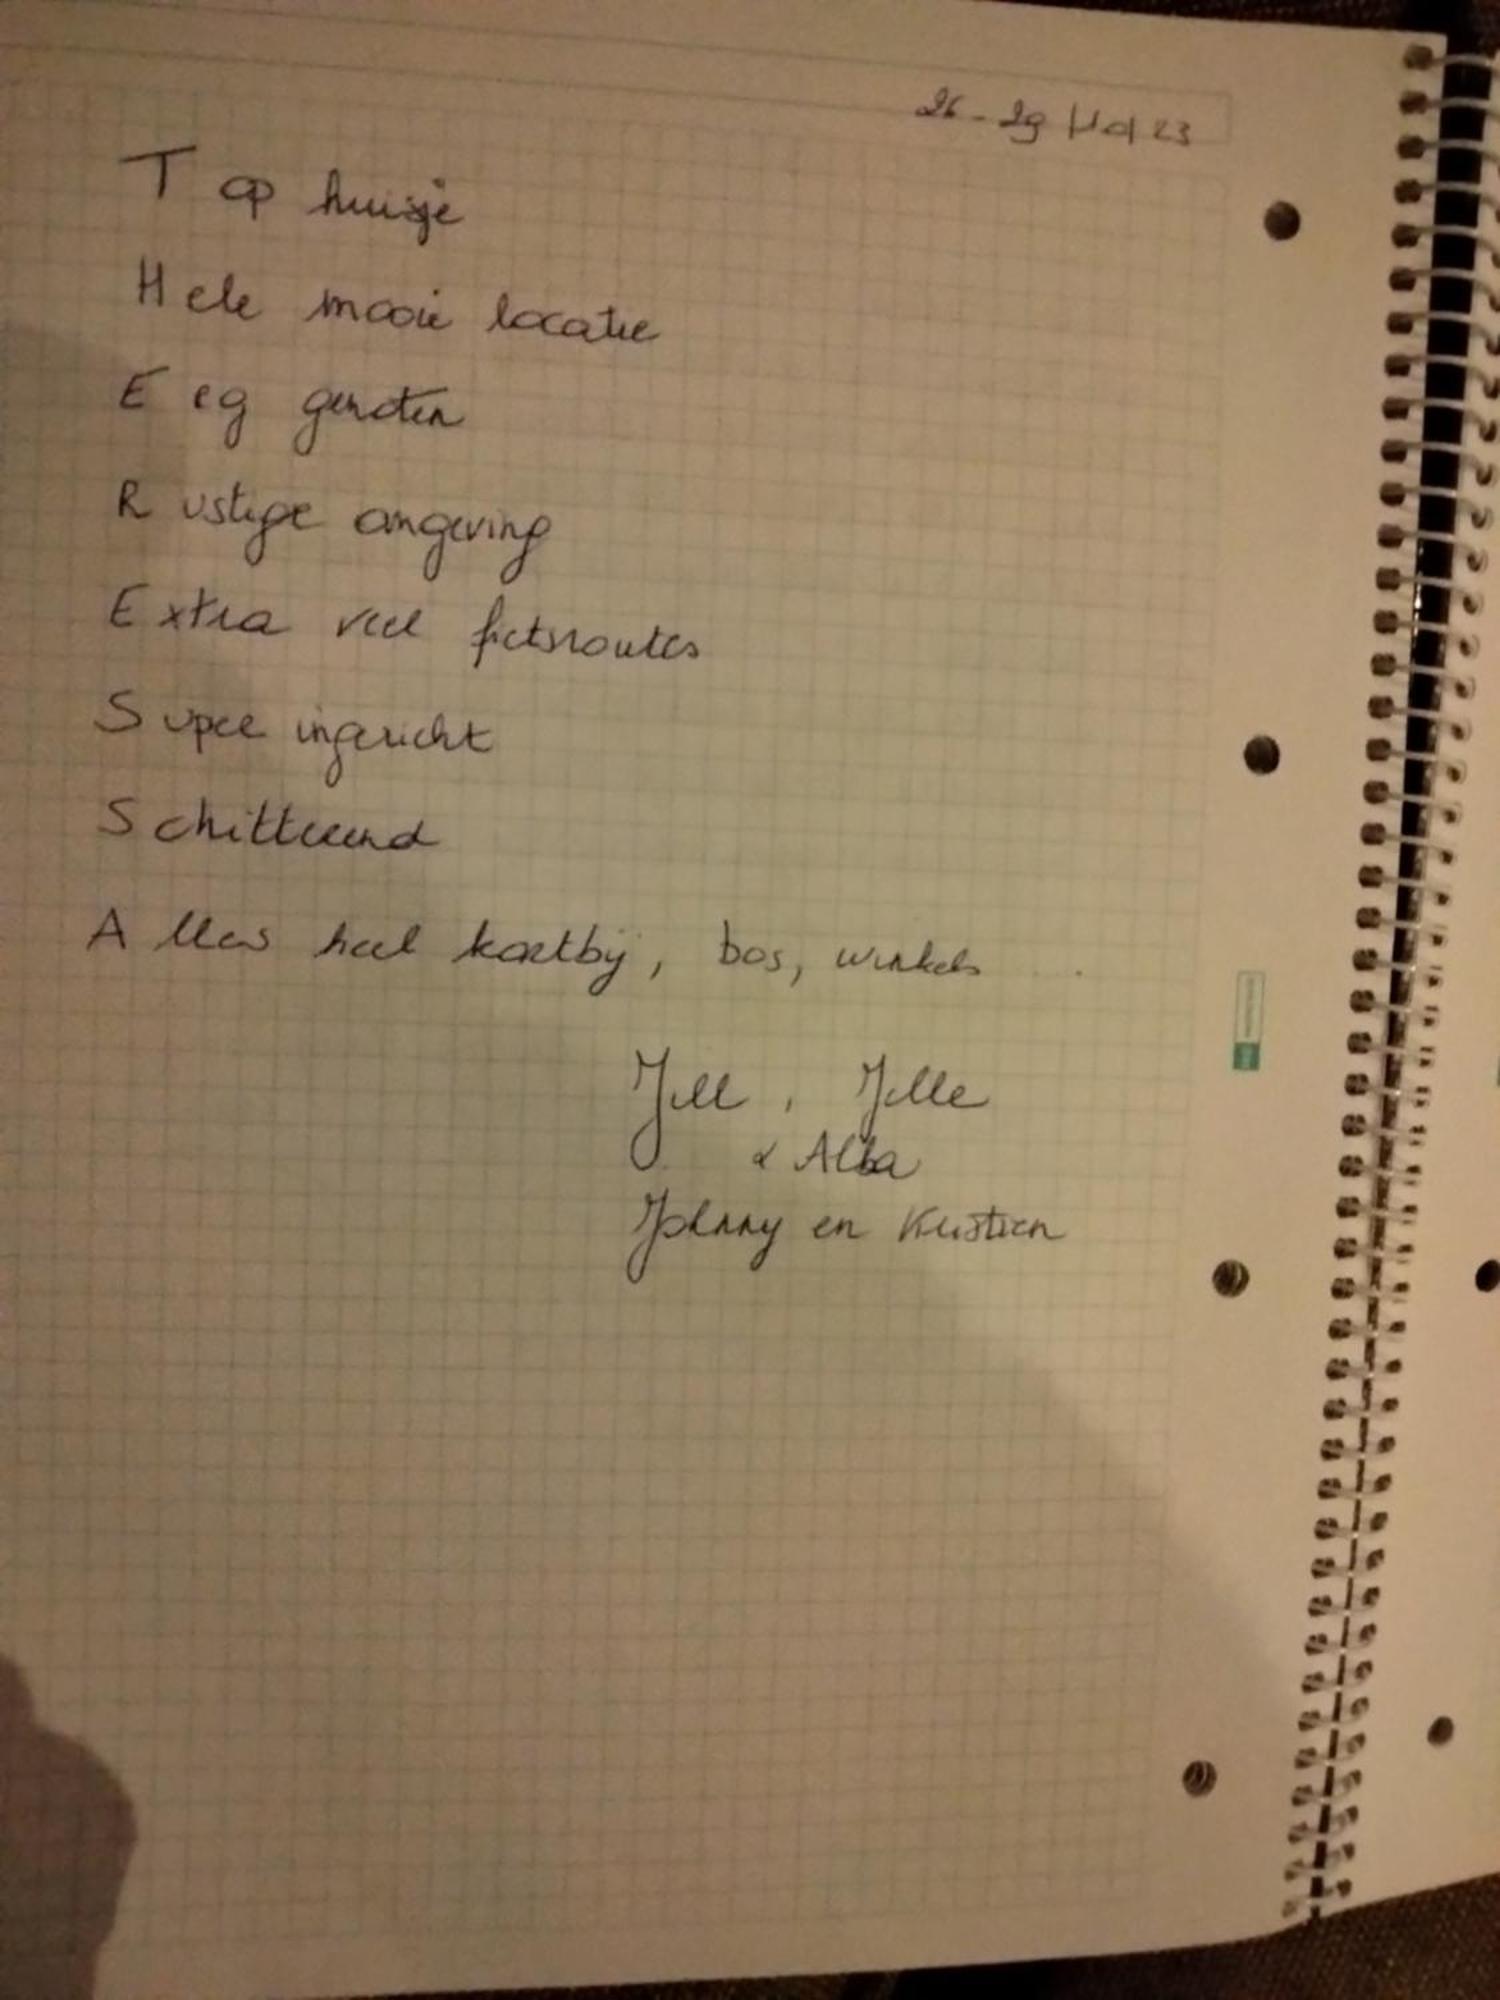 26-29 mei 23
Top huisje
Hele mooie locatie
Erg genoten
Rustige omgeving
Extra veel fietsroutes
Super ingericht
Schitterend
Alles heel kortbij, bos, winkels ...
Jill, Jelle
& Alba
Johnny en Kristien